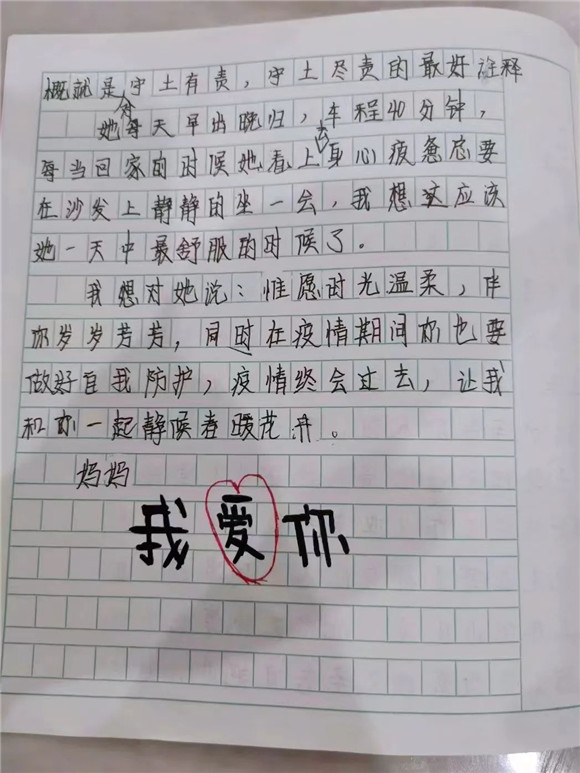 概就是守土有责，守土尽责的最好诠释
她每天早出晚归，车程40分钟，
每当回家的时候她看上去身心疲惫总要
在沙发上静静的坐一会，我想这应该
她一天中最舒服的时候了。
我想对她说：惟愿时光温柔，伴
你岁岁芳芳，同时在疫情期间你也要
做好自我防护，疫情终会过去，让我
和你一起静候春暖花开。
妈妈
我爱你